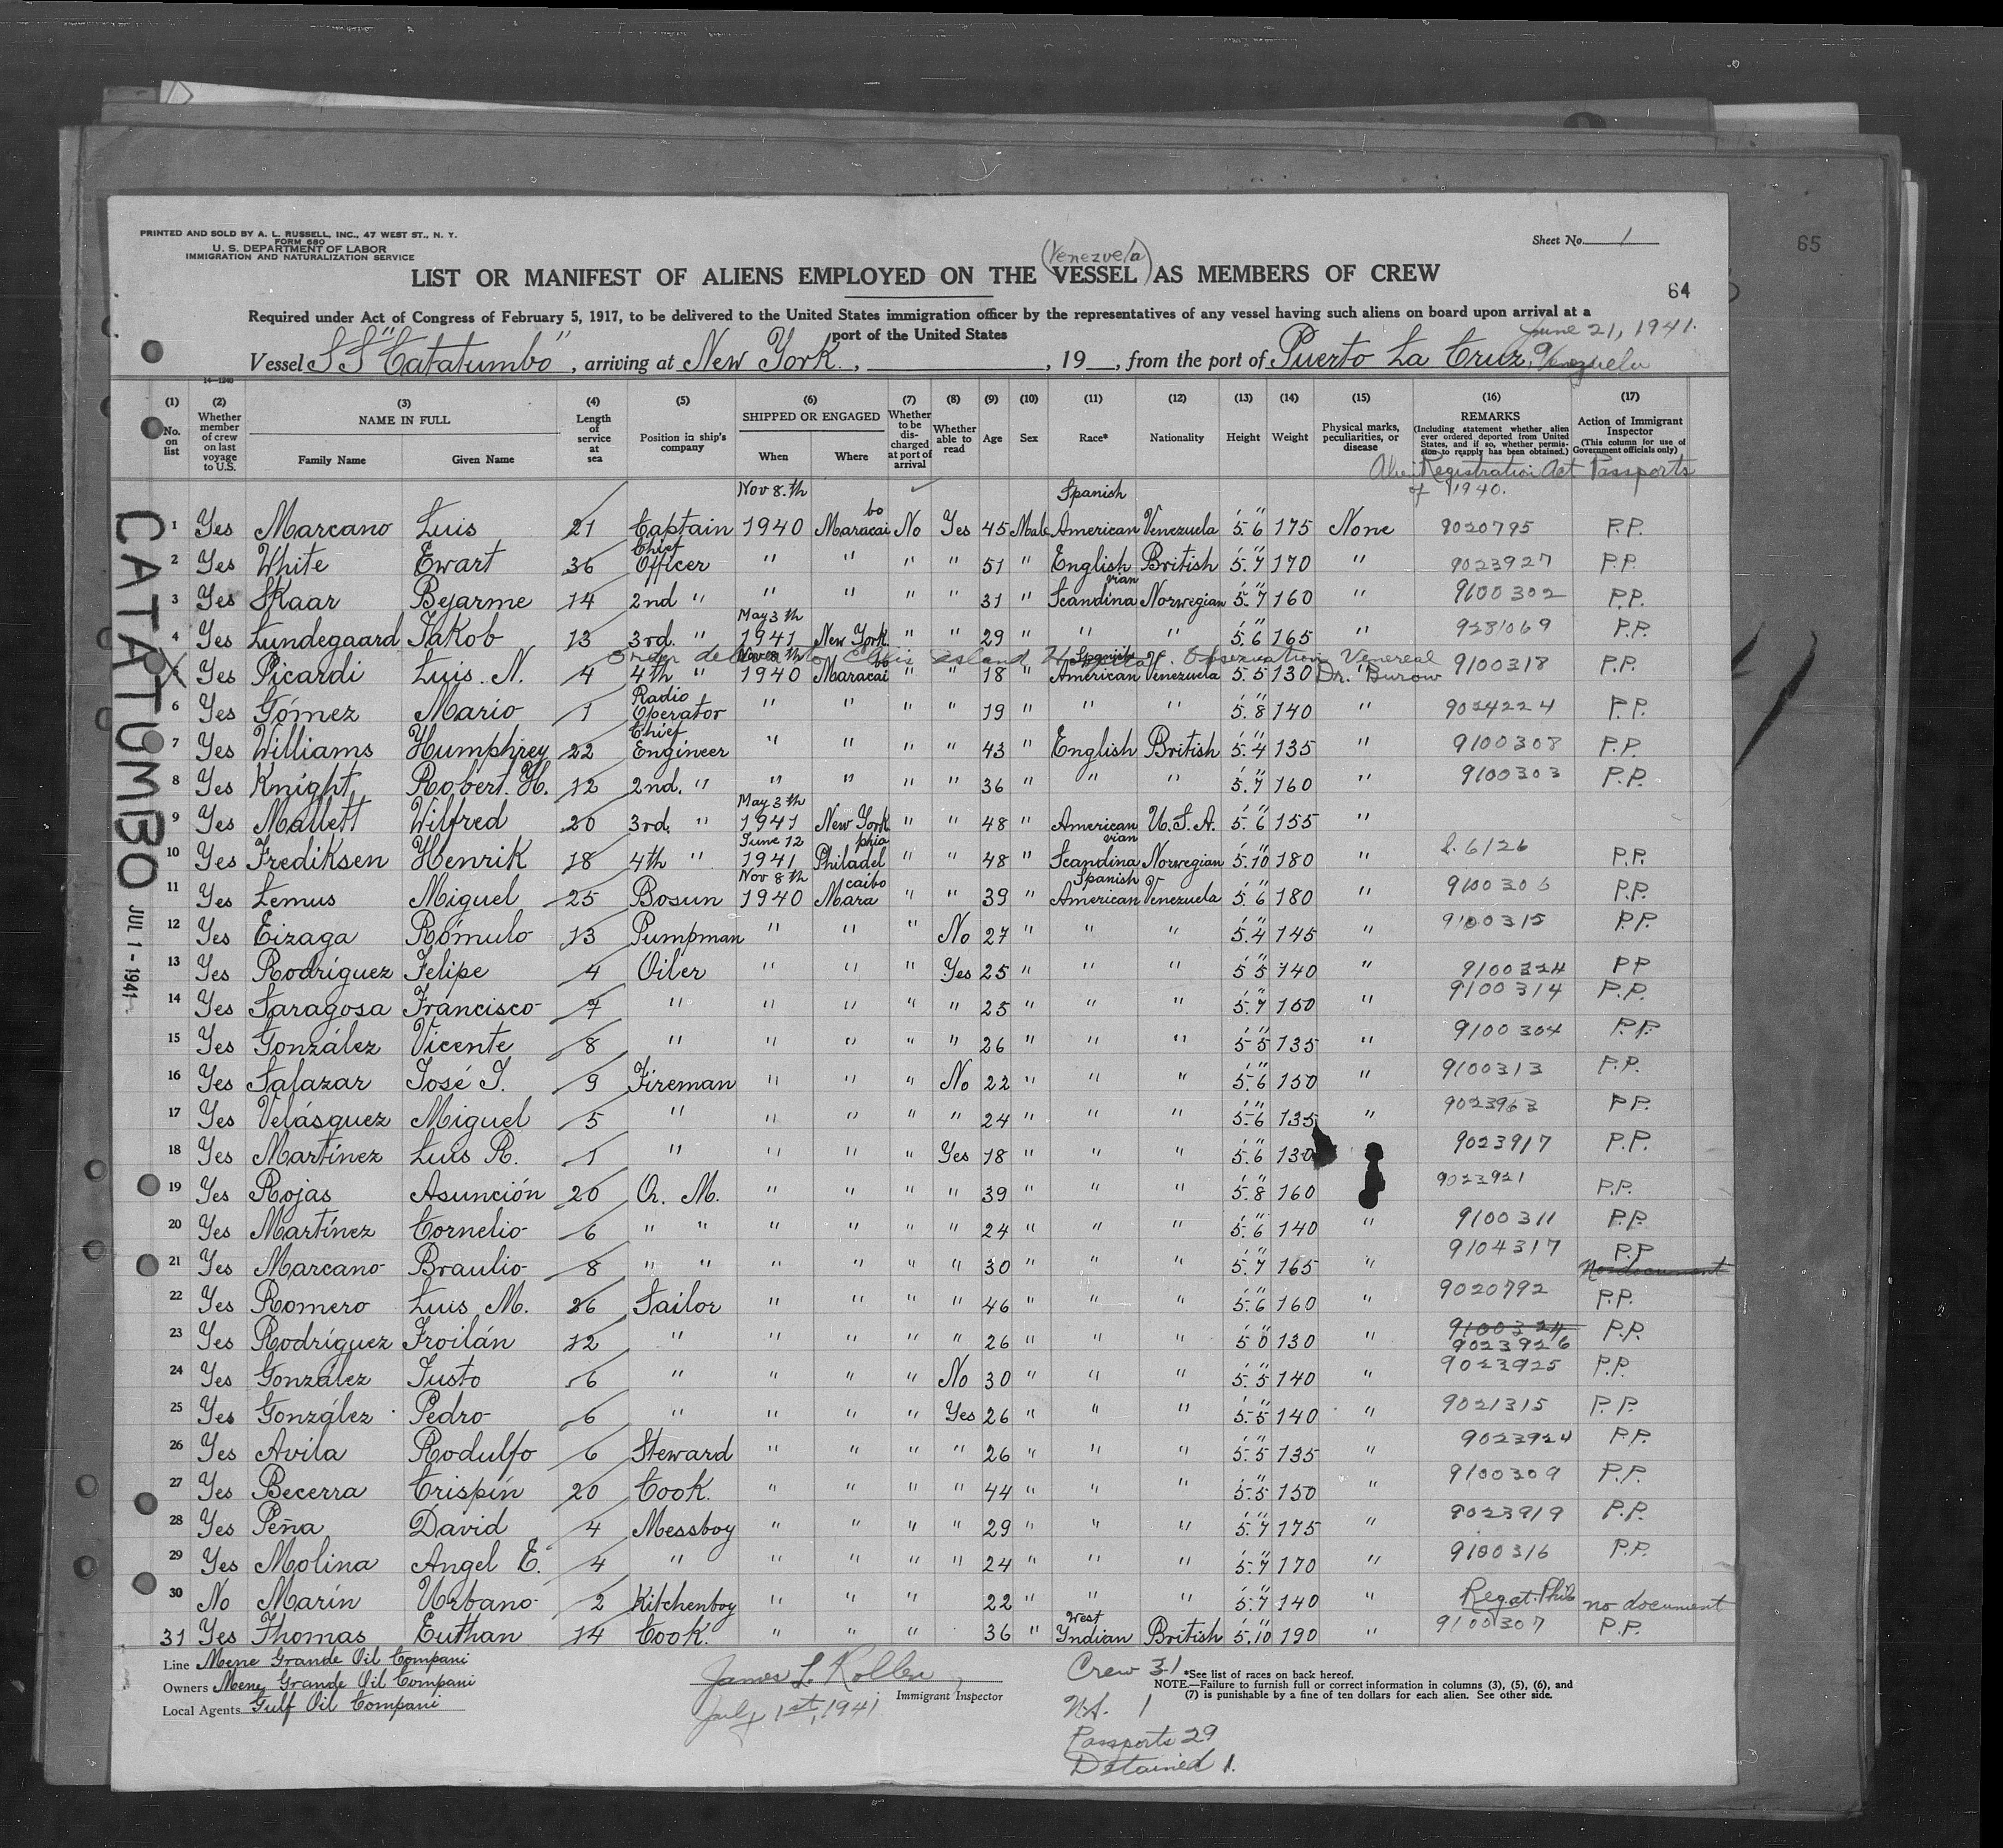 PRINTED AND SOLD BY A. L. RUSSELL, INC., 47 WEST ST., N. Y.
FORM 680
U. S. DEPARTMENT OF LABOR
IMMIGRATION AND NATURALIZATION SERVICE
Sheet No. 1
65
(Venezuela)
LIST OR MANIFEST OF ALIENS EMPLOYED ON THE VESSEL AS MEMBERS OF CREW
64
Required under Act of Congress of February 5, 1917, to be delivered to the United States immigration officer by the representatives of any vessel having such aliens on board upon arrival at a
port of the United States
June 21, 1941.
Vessel SS "Catatumbo", arriving at New York, 19 , from the port of Puerto La Cruz, Venezuela
14-1240
(1) (2) (3) (4) (5) (6) (7) (8) (9) (10) (11) (12) (13) (14) (15) (16) (17)
No. on list
Whether member of crew on last voyage to U.S.
NAME IN FULL
Family Name Given Name
Length of service at sea
Position in ship's company
SHIPPED OR ENGAGED
When Where
Whether to be discharged at port of arrival
Whether able to read
Age Sex Race* Nationality Height Weight
Physical marks, peculiarities, or disease
REMARKS
(Including statement whether alien ever ordered deported from United States, and if so, whether permission to reapply has been obtained.)
Action of Immigrant Inspector
(This column for use of Government officials only)
Alien Registration Act Passports
of 1940.
Nov 8.th Spanish
1 Yes Marcano Luis 21 Captain 1940 Maracaibo No Yes 45 Male American Venezuela 5'.6" 175 None 9020795 P.P.
2 Yes White Ewart 36 Chief Officer " " " " 51 " English British 5'.7" 170 " 9023927 P.P.
3 Yes Skaar Bejarme 14 2nd " " " " " 31 " Scandinavian Norwegian 5'.7" 160 " 9100302 P.P.
May 3 th
4 Yes Lundegaard Jakob 13 3rd. " 1941 New York " " 29 " " " 5'.6" 165 " 9281069 P.P.
Order detained to Ellis Island Hospital. Observation Venereal
Nov 8 th Spanish
5 Yes Picardi Luis. N. 4 4th " 1940 Maracaibo " " 18 " American Venezuela 5'.5" 130 Dr. Burow 9100318 P.P.
6 Yes Gómez Mario 1 Radio Operator " " " " 19 " " " 5'.8" 140 " 9024224 P.P.
7 Yes Williams Humphrey 22 Chief Engineer " " " " 43 " English British 5'.4" 135 " 9100308 P.P.
8 Yes Knight Robert. H. 12 2nd. " " " " " 36 " " " 5'.7" 160 " 9100303 P.P.
May 3 th
9 Yes Mallett Wilfred 20 3rd. " 1941 New York " " 48 " American U.S.A. 5'.6" 155 "
June 12
10 Yes Frediksen Henrik 18 4th " 1941 Philadelphia " " 48 " Scandinavian Norwegian 5'.10" 180 " l. 6/26 P.P.
Nov 8 th Spanish
11 Yes Lemus Miguel 25 Bosun 1940 Maracaibo " " 39 " American Venezuela 5'.6" 180 " 9100306 P.P.
12 Yes Eizaga Rómulo 13 Pumpman " " " No 27 " " " 5'.4" 145 " 9100315 P.P.
13 Yes Rodríguez Felipe 4 Oiler " " " Yes 25 " " " 5'5" 140 " 9100324 P.P
14 Yes Saragosa Francisco 7 " " " " " 25 " " " 5'.7" 150 " 9100314 P.P.
15 Yes González Vicente 8 " " " " " 26 " " " 5'5" 135 " 9100304 P.P.
16 Yes Salazar José J. 9 Fireman " " " No 22 " " " 5'.6" 150 " 9100313 P.P.
17 Yes Velásquez Miguel 5 " " " " " 24 " " " 5'.6" 135 " 9023963 P.P.
18 Yes Martínez Luis R. 1 " " " " Yes 18 " " " 5'.6" 130 9023917 P.P.
19 Yes Rojas Asunción 20 Q. M. " " " " 39 " " " 5'.8" 160 9023921 P.P.
20 Yes Martínez Cornelio 6 " " " " " " 24 " " " 5'.6" 140 " 9100311 P.P.
21 Yes Marcano Braulio 8 " " " " " " 30 " " " 5'.7" 165 " 9104317 P.P
No document
22 Yes Romero Luis M. 26 Sailor " " " " 46 " " " 5'.6" 160 " 9020792 P.P.
23 Yes Rodríguez Froilán 12 " " " " " 26 " " " 5'0" 130 " 9100324 P.P.
9023926
24 Yes González Justo 6 " " " " No 30 " " " 5'.5" 140 " 9023925 P.P.
25 Yes González Pedro 6 " " " " Yes 26 " " " 5'.5" 140 " 9021315 P.P.
26 Yes Avila Rodulfo 6 Steward " " " " 26 " " " 5'.5" 135 " 9023924 P.P.
27 Yes Becerra Crispín 20 Cook. " " " " 44 " " " 5'.5" 150 " 9100309 P.P.
28 Yes Peña David 4 Messboy " " " " 29 " " " 5'.7" 175 " 9023919 P.P.
29 Yes Molina Angel E. 4 " " " " " 24 " " " 5'.7" 170 " 9100316 P.P.
30 No Marín Urbano 2 Kitchenboy " " " 22 " " " 5'.7" 140 " Regat. Phib no document
31 Yes Thomas Euthan 14 Cook. " " " 36 " West Indian British 5'.10" 190 " 9100307 P.P.
CATATUMBO JUL 1 - 1941
Line Mene Grande Oil Compani
Owners Mene Grande Oil Compani
Local Agents Gulf Oil Compani
James L. Kollen
Immigrant Inspector
July 1st, 1941
Crew 31
*See list of races on back hereof.
NOTE.—Failure to furnish full or correct information in columns (3), (5), (6), and
(7) is punishable by a fine of ten dollars for each alien. See other side.
1
Passports 29
Detained 1.